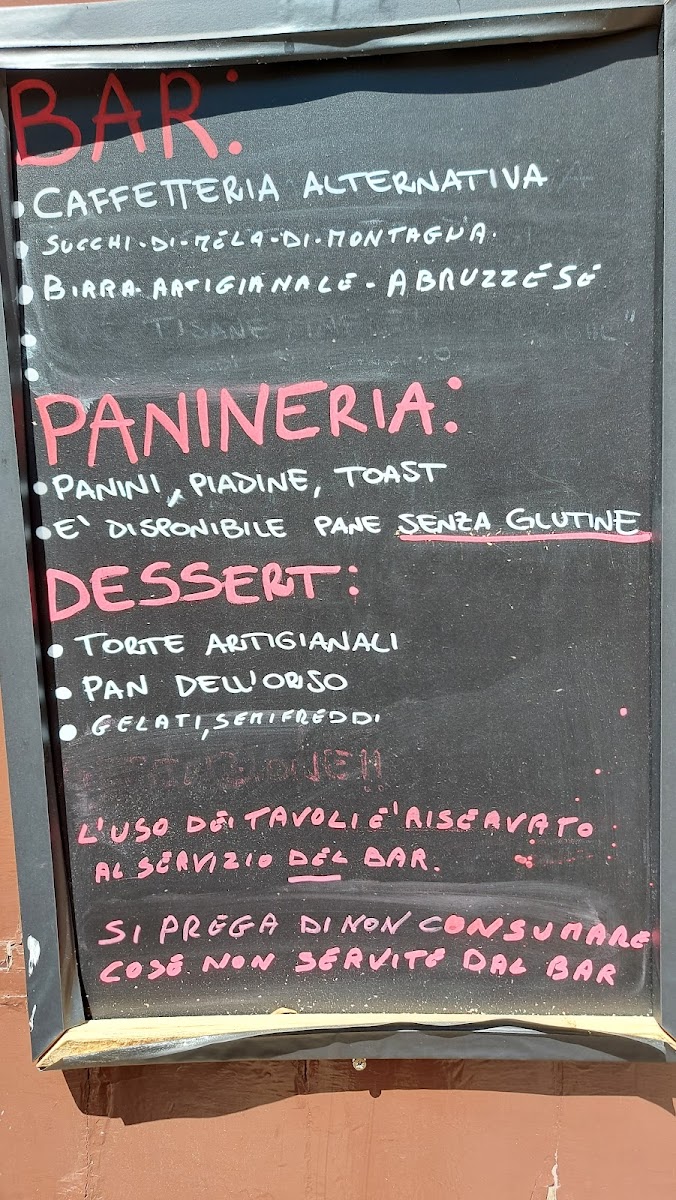 BAR:
• CAFFETTERIA ALTERNATIVA
• SUCCHI-DI-MELA-DI-MONTAGNA.
• BIRRA-ARTIGIANALE-ABRUZZESE
TISANE
PANINERIA:
• PANINI, PIADINE, TOAST
• E' DISPONIBILE PANE SENZA GLUTINE
DESSERT:
• TORTE ARTIGIANALI
• PAN DELL'ORSO
• GELATI, SEMIFREDDI
L'USO DEI TAVOLI E' RISERVATO
AL SERVIZIO DEL BAR.
SI PREGA DI NON CONSUMARE
COSE NON SERVITE DAL BAR